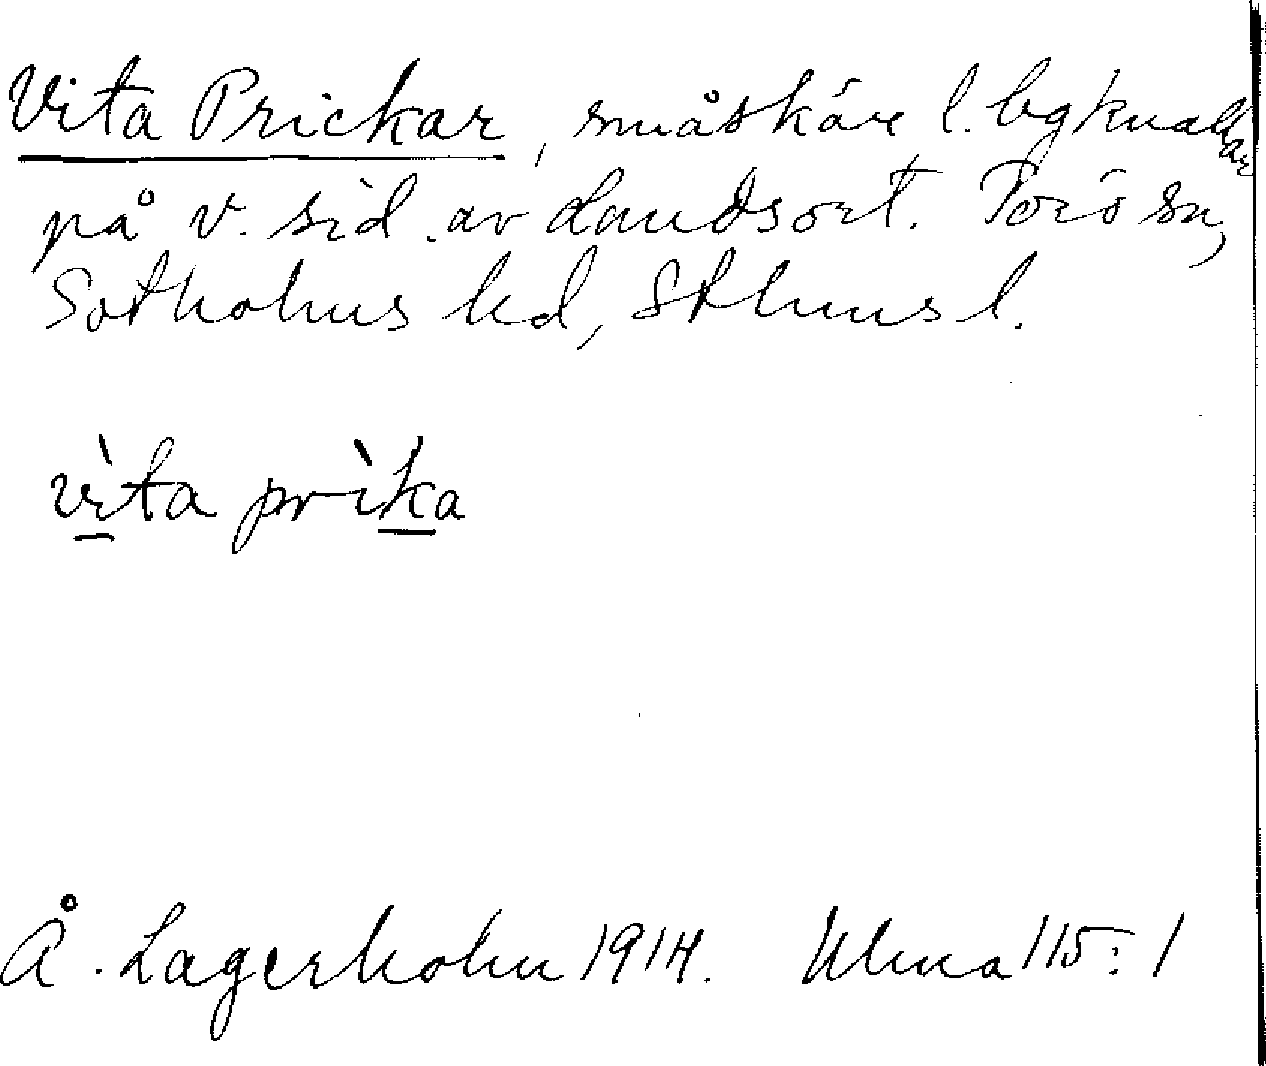 Vita Prickar, småskär l. bgknallar
på v. sid. av Landsort. Torö sn,
Sotholms hd, Sthlms l.
vìta prìka
Å. Lagerholm 1914. Ulma 115:1